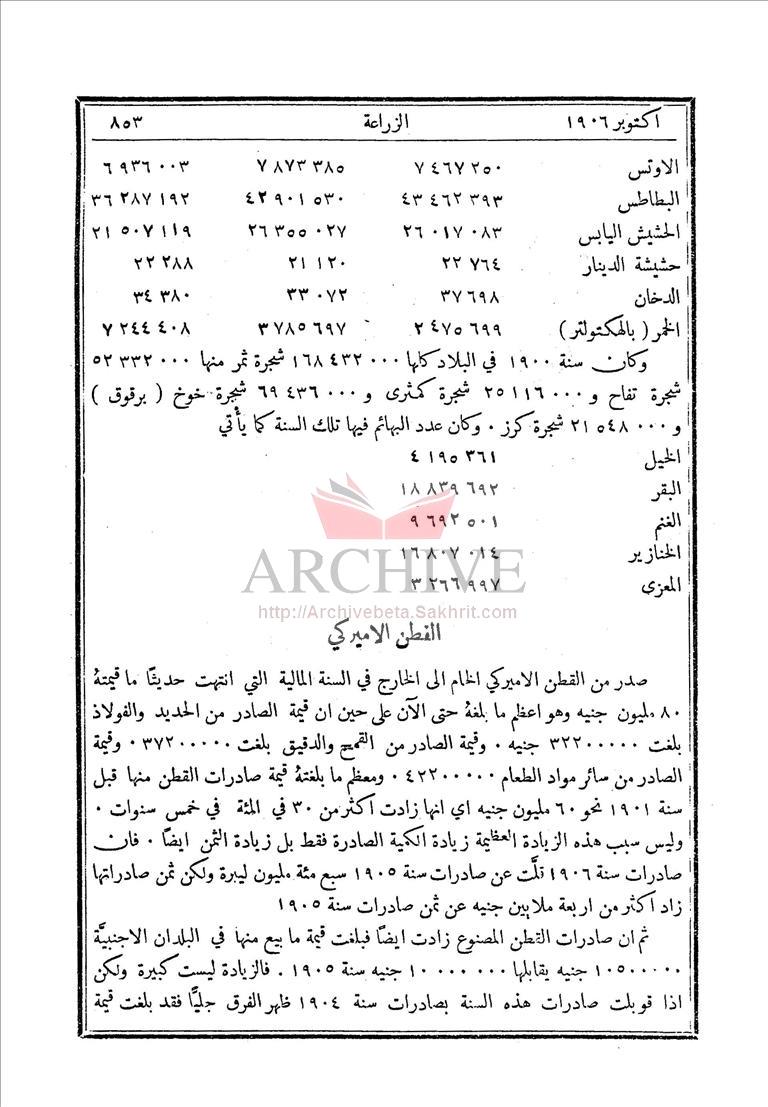 اكتوبر ١٩٠٦ الزراعة ٨٥٣
الاوتس ٧٤٦٧٢٥٠ ٧٨٧٣٣٨٥ ٦٩٣٦٠٠٣
البطاطس ٤٣٤٦٢٣٩٣ ٤٢٩٠١٥٣٠ ٣٦٢٨٧١٩٢
الحشيش اليابس ٢٦٠١٧٠٨٣ ٢٦٣٥٥٠٢٧ ٢١٥٠٧١١٩
حشيشة الدينار ٢٢٧٦٤ ٢١١٢٠ ٢٢٢٨٨
الدخان ٣٧٦٩٨ ٣٣٠٧٢ ٣٤٣٨٠
الخمر ( بالهكتولتر ) ٢٤٧٥٦٩٩ ٣٧٨٥٦٩٧ ٧٢٤٤٤٠٨
وكان سنة ١٩٠٠ في البلاد كلها ١٦٨٤٣٢٠٠٠ شجرة ثمر منها ٥٢٣٣٢٠٠٠
شجرة تفاح و ٢٥١١٦٠٠٠ شجرة كمثرى و ٦٩٤٣٦٠٠٠ شجرة خوخ ( برقوق )
و ٢١٥٤٨٠٠٠ شجرة كرز ٠ وكان عدد البهائم فيها تلك السنة كما يأتي
الخيل ٤١٩٥٣٦١
البقر ١٨٨٣٩٦٩٢
الغنم ٩٦٩٢٥٠١
الخنازير ١٦٨٠٧٠١٤
ARCHIVE
المعزى ٣٢٦٦٩٩٧
http://Archivebeta.Sakhrit.com
القطن الاميركي
صدر من القطن الاميركي الخام الى الخارج في السنة المالية التي انتهت حديثًا ما قيمتهُ
٨٠ مليون جنيه وهو اعظم ما بلغهُ حتى الآن على حين ان قيمة الصادر من الحديد والفولاذ
بلغت ٣٢٢٠٠٠٠٠ جنيه ٠ وقيمة الصادر من القمح والدقيق بلغت ٣٧٢٠٠٠٠٠ ٠ وقيمة
الصادر من سائر مواد الطعام ٤٢٢٠٠٠٠٠ ٠ ومعظم ما بلغتهُ قيمة صادرات القطن منها قبل
سنة ١٩٠١ نحو ٦٠ مليون جنيه اي انها زادت اكثر من ٣٠ في المئة في خمس سنوات ٠
وليس سبب هذه الزيادة العظيمة زيادة الكمية الصادرة فقط بل زيادة الثمن ايضًا ٠ فان
صادرات سنة ١٩٠٦ قلَّت عن صادرات سنة ١٩٠٥ سبع مئة مليون ليبرة ولكن ثمن صادراتها
زاد اكثر من اربعة ملايين جنيه عن ثمن صادرات سنة ١٩٠٥
ثم ان صادرات القطن المصنوع زادت ايضًا فبلغت قيمة ما بيع منها في البلدان الاجنبيَّة
١٠٥٠٠٠٠٠ جنيه يقابلها ١٠٠٠٠٠٠٠ جنيه سنة ١٩٠٥ . فالزيادة ليست كبيرة ولكن
اذا قوبلت صادرات هذه السنة بصادرات سنة ١٩٠٤ ظهر الفرق جليًّا فقد بلغت قيمة